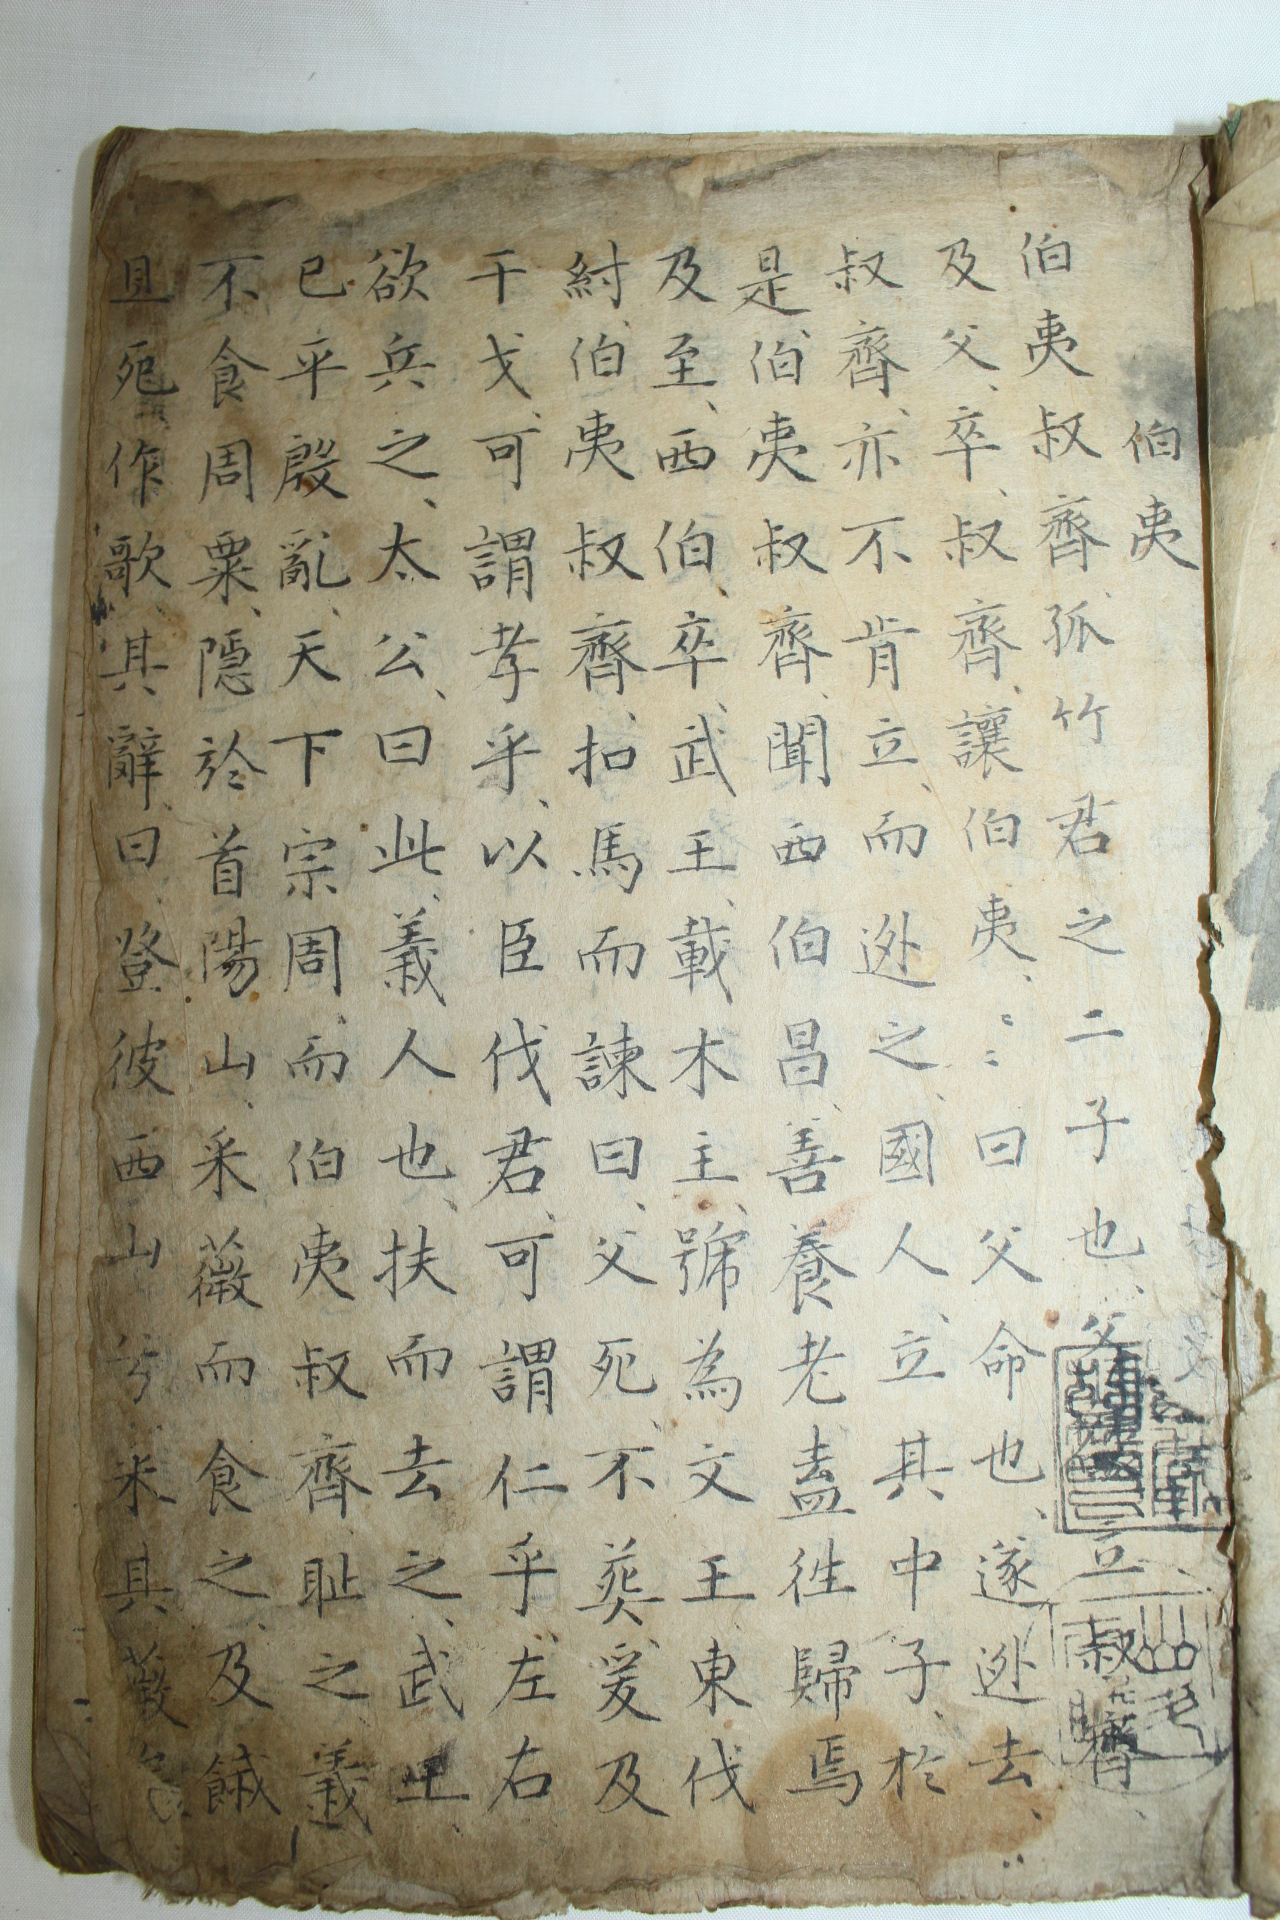 伯夷
伯夷叔齊孤竹君之二子也、父欲立叔齊、
及父、卒、叔齊、讓伯夷、〻〻曰父命也、遂逊去、
叔齊、亦不肯立、而逊之、國人、立其中子、於
是、伯夷叔齊、聞西伯昌、善養老、盍徃歸焉
及至、西伯、卒、武王、載木主、號為文王、東伐
紂、伯夷叔齊、扣馬而諫曰、父死、不葬、爰及
干戈、可謂孝乎、以臣伐君、可謂仁乎、左右
欲兵之、太公、曰此、義人也、扶而去之、武王、
已平殷亂、天下宗周、而伯夷叔齊、耻之、義
不食周粟、隱於首陽山、采薇而食之、及餓
且死、作歌、其辭、曰、登彼西山兮采其薇